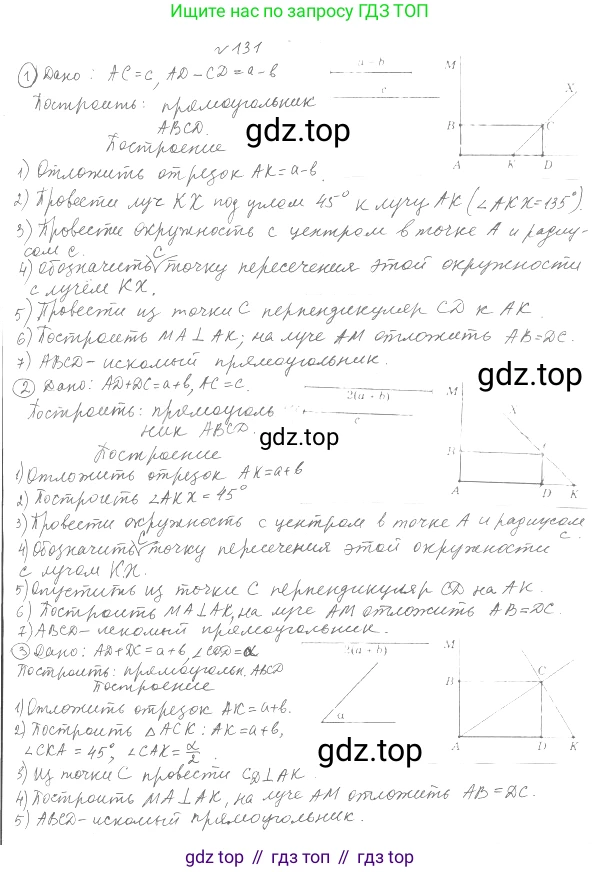 Ищите нас по запросу GDZ.TOP
№131
① Дано: AC=c, AD-CD=a-b
a-b
c
Построить: прямоугольник
ABCD.
Построение
1) Отложить отрезок AK=a-b.
2) Провести луч KX под углом 45° к лучу AK (∠AKX=135°).
3) Провести окружность с центром в точке A и радиу-
сом c.
4) Обозначить C точку пересечения этой окружности
с лучём KX.
5) Провести из точки C перпендикуляр CD к AK.
6) Построить MA⊥AK; на луче AM отложить AB=DC.
7) ABCD-искомый прямоугольник.
M
X
B
C
A
K
D
gdz.top
gdz.top
② Дано: AD+DC=a+b, AC=c.
2(a+b)
c
Построить: прямоуголь
ник ABCD.
Построение
1) Отложить отрезок AK=a+b
2) Построить ∠AKX=45°
3) Провести окружность с центром в точке A и радиусом
c.
4) Обозначить C точку пересечения этой окружности
с лучом KX.
5) Опустить из точки C перпендикуляр CD на AK.
6) Построить MA⊥AK, на луче AM отложить AB=DC.
7) ABCD-искомый прямоугольник.
M
X
B
A
D
K
gdz.top
gdz.top
③ Дано: AD+DC=a+b, ∠COD=α
2(a+b)
α
Построить: прямоугольн. ABCD
Построение
1) Отложить отрезок AK=a+b.
2) Построить △ACK: AK=a+b,
∠CKA=45°, ∠CAK=α/2.
3) Из точки C провести CD⊥AK.
4) Построить MA⊥AK, на луче AM отложить AB=DC.
5) ABCD-искомый прямоугольник.
M
B
C
A
D
K
gdz.top
gdz.top
gdz top // гдз топ // gdz top